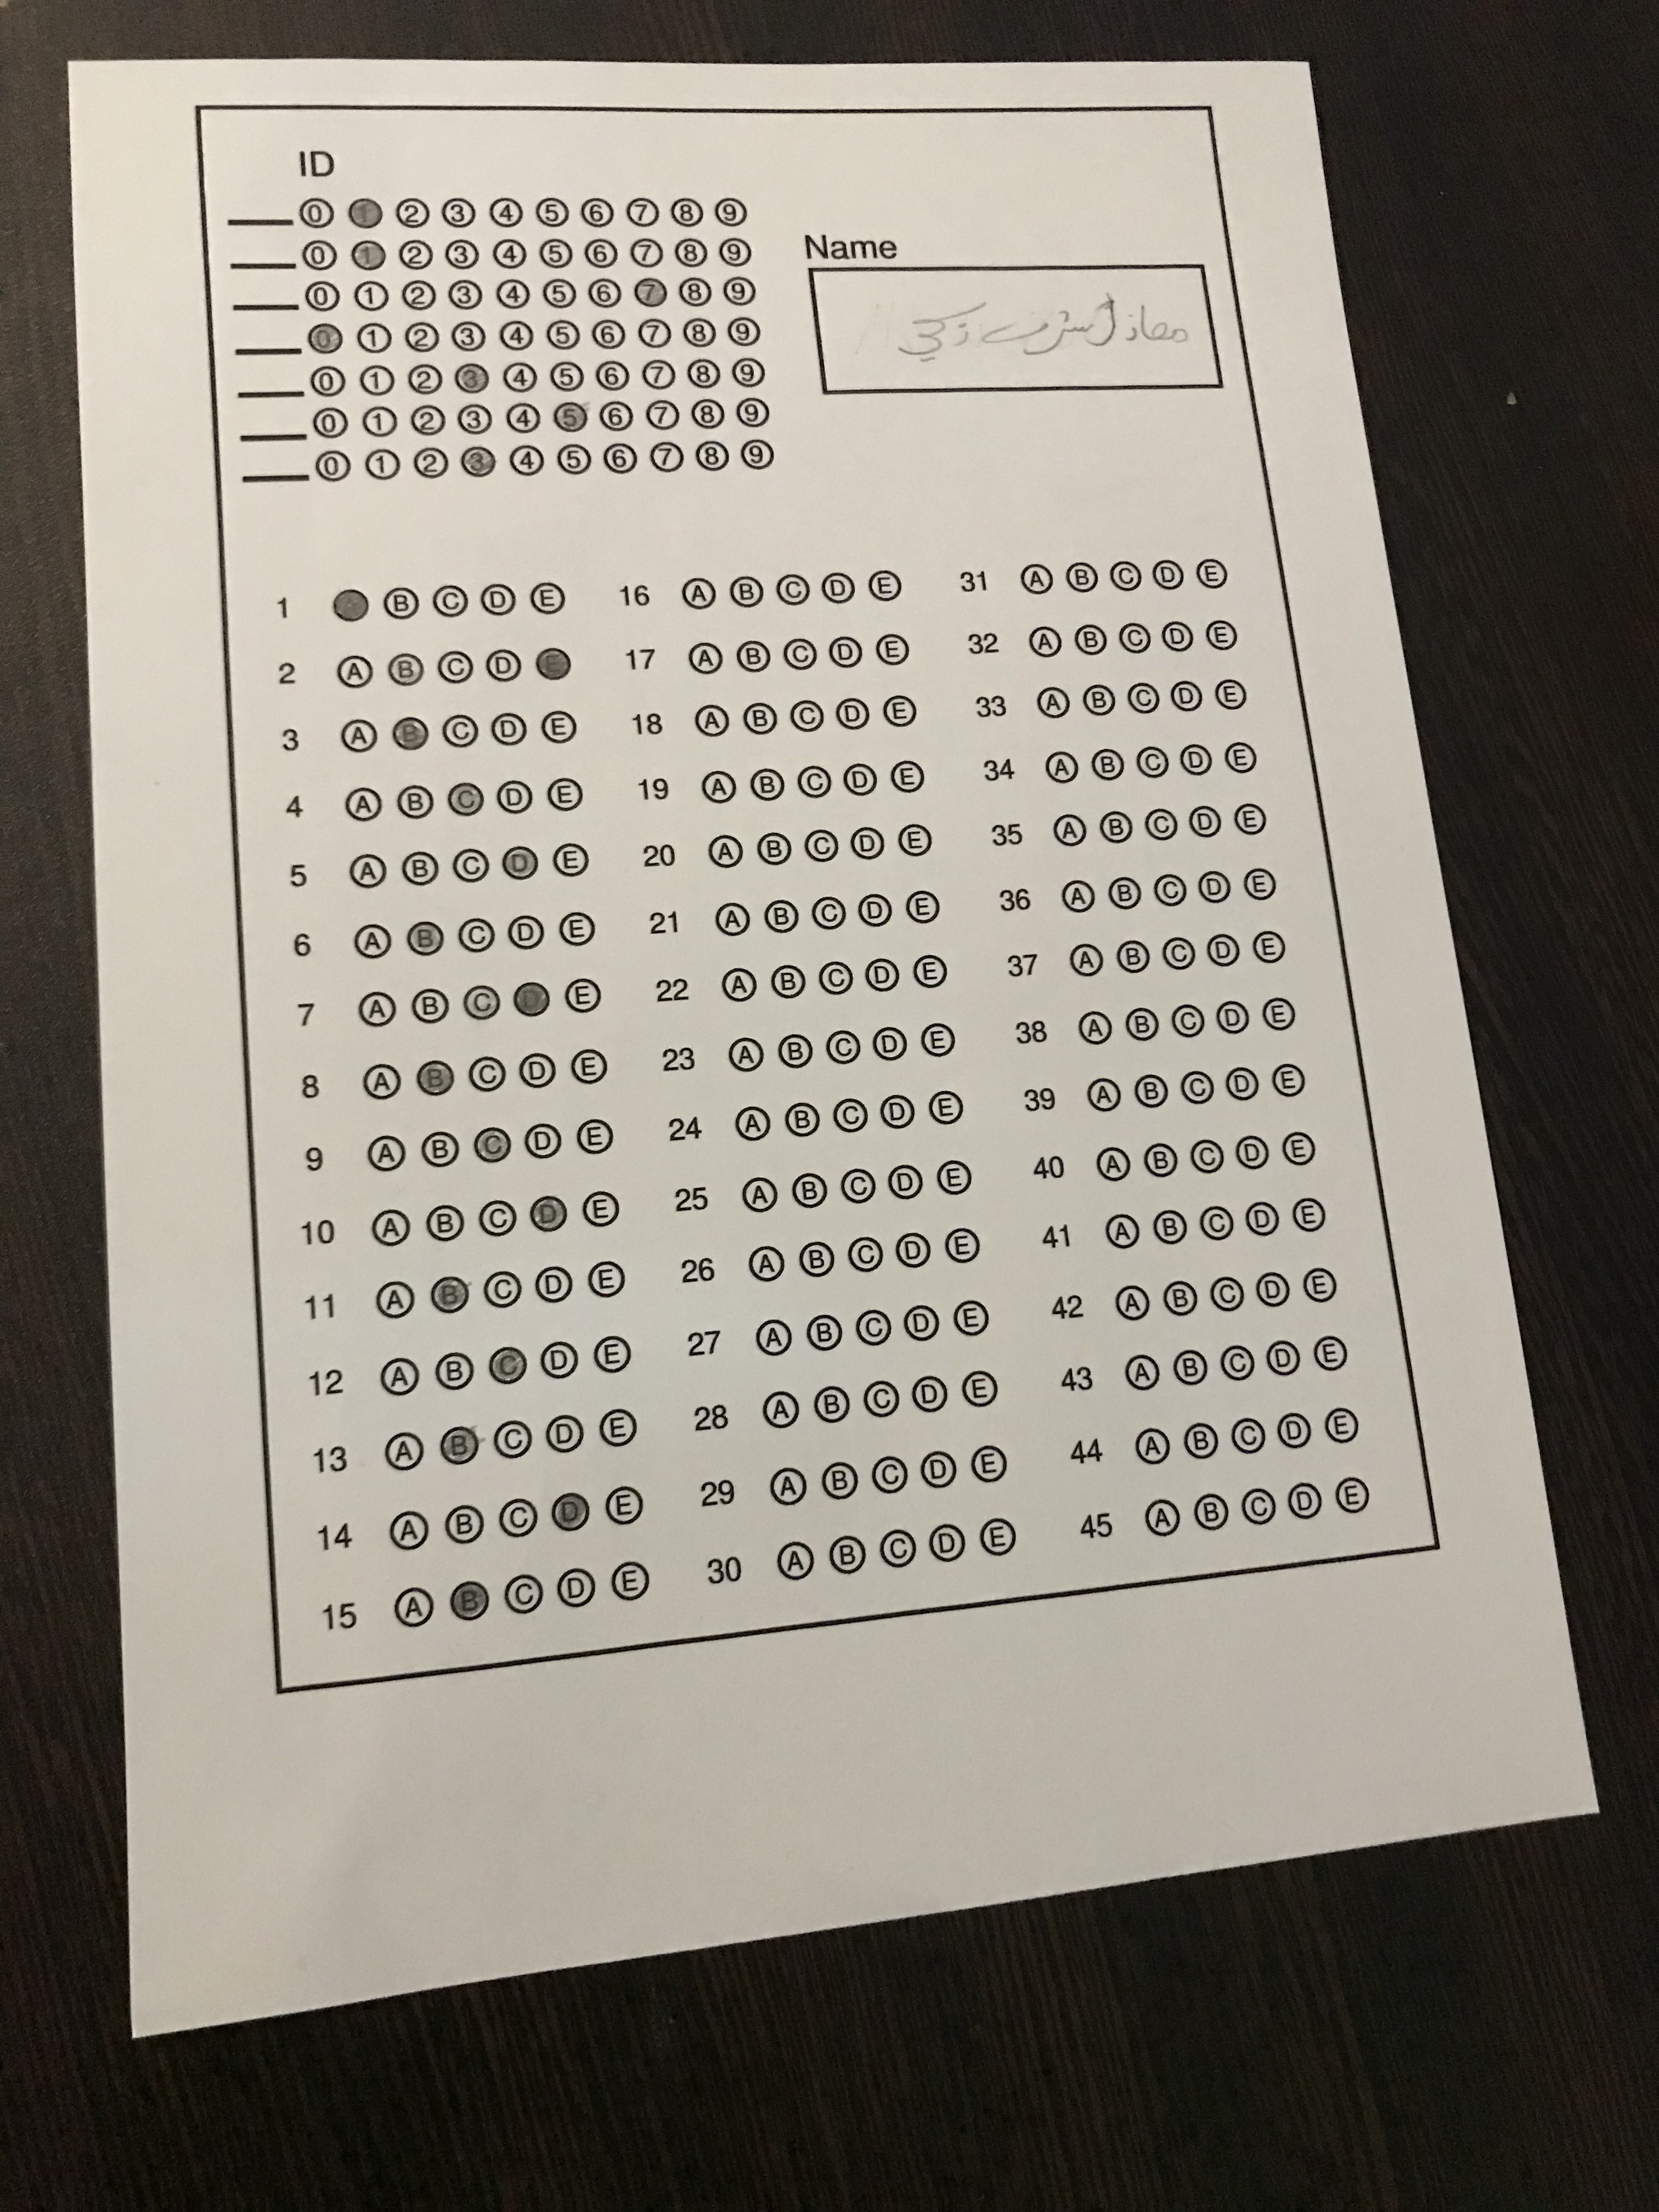 ID
0 1 2 3 4 5 6 7 8 9
0 1 2 3 4 5 6 7 8 9
0 1 2 3 4 5 6 7 8 9
0 1 2 3 4 5 6 7 8 9
0 1 2 3 4 5 6 7 8 9
0 1 2 3 4 5 6 7 8 9
0 1 2 3 4 5 6 7 8 9
Name
معاذ أشرف زكي
1 A B C D E
2 A B C D E
3 A B C D E
4 A B C D E
5 A B C D E
6 A B C D E
7 A B C D E
8 A B C D E
9 A B C D E
10 A B C D E
11 A B C D E
12 A B C D E
13 A B C D E
14 A B C D E
15 A B C D E
16 A B C D E
17 A B C D E
18 A B C D E
19 A B C D E
20 A B C D E
21 A B C D E
22 A B C D E
23 A B C D E
24 A B C D E
25 A B C D E
26 A B C D E
27 A B C D E
28 A B C D E
29 A B C D E
30 A B C D E
31 A B C D E
32 A B C D E
33 A B C D E
34 A B C D E
35 A B C D E
36 A B C D E
37 A B C D E
38 A B C D E
39 A B C D E
40 A B C D E
41 A B C D E
42 A B C D E
43 A B C D E
44 A B C D E
45 A B C D E